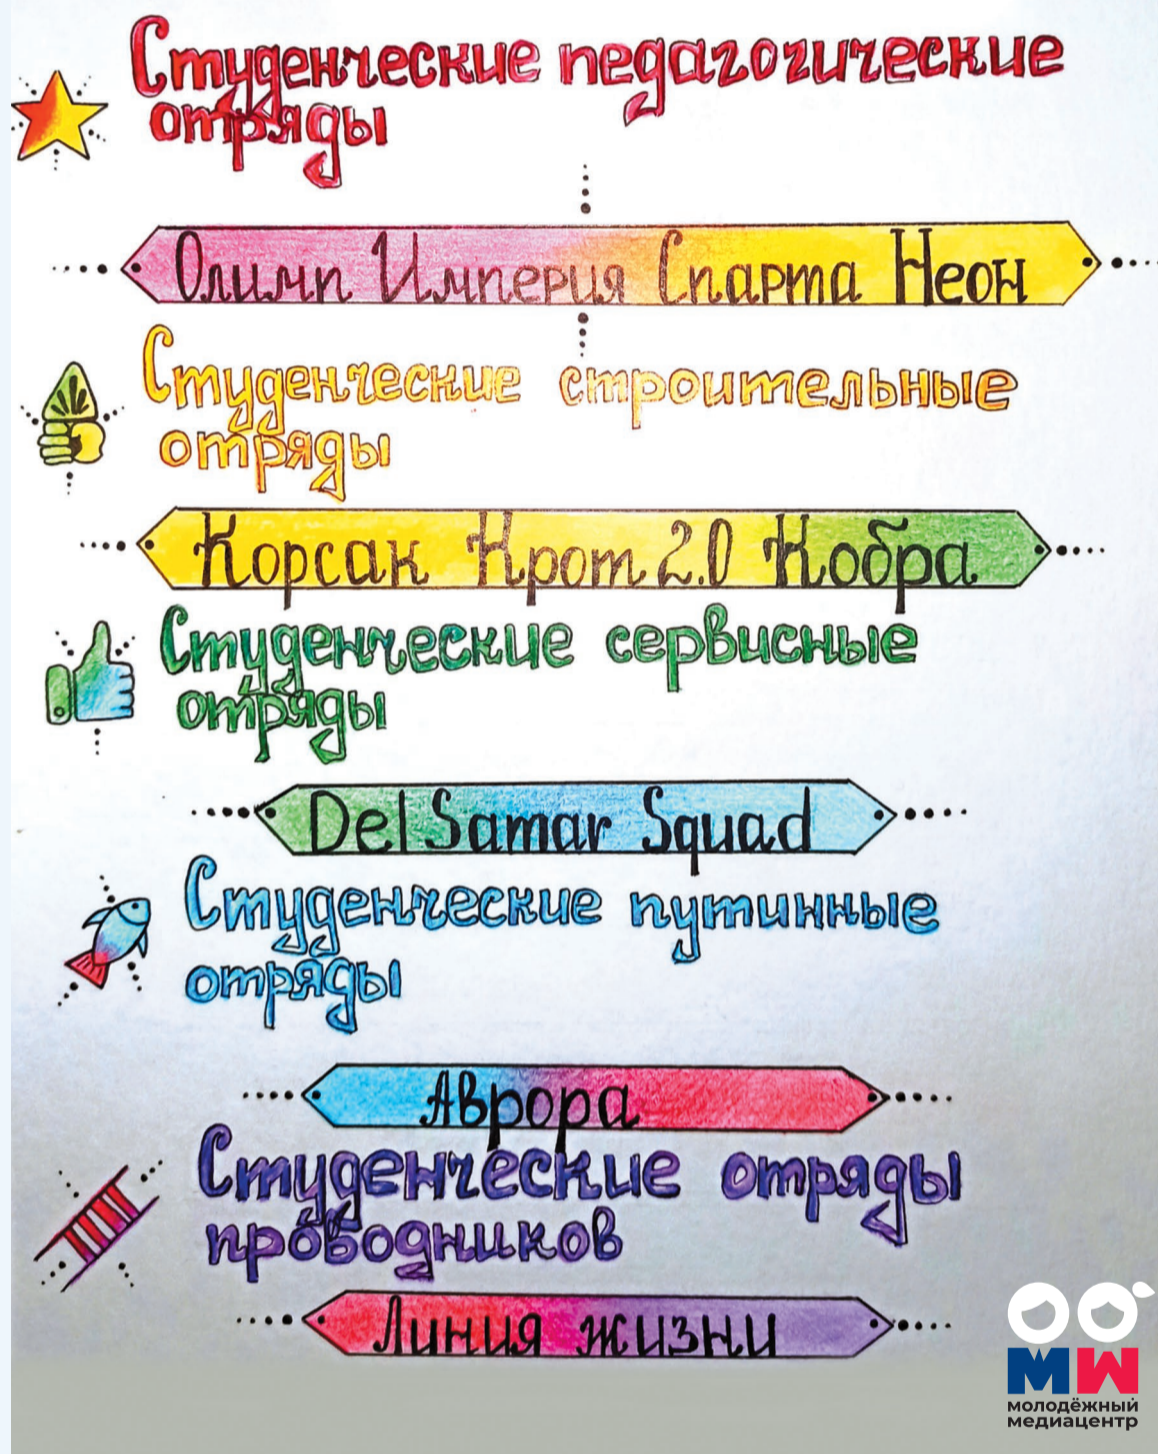 Студенческие педагогические
отряды
Олимп Империя Спарта Неон
Студенческие строительные
отряды
Корсак Крот 2.0 Кобра
Студенческие сервисные
отряды
Del Samar Squad
Студенческие путинные
отряды
Аврора
Студенческие отряды
проводников
Линия жизни
молодёжный
медиацентр